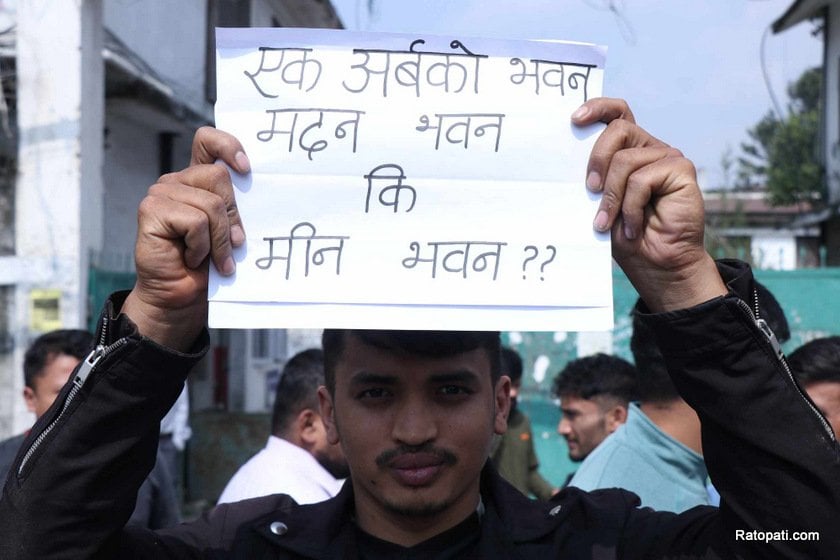 एक अर्बको भवन
मदन भवन
कि
मीन भवन ??
Ratopati.com